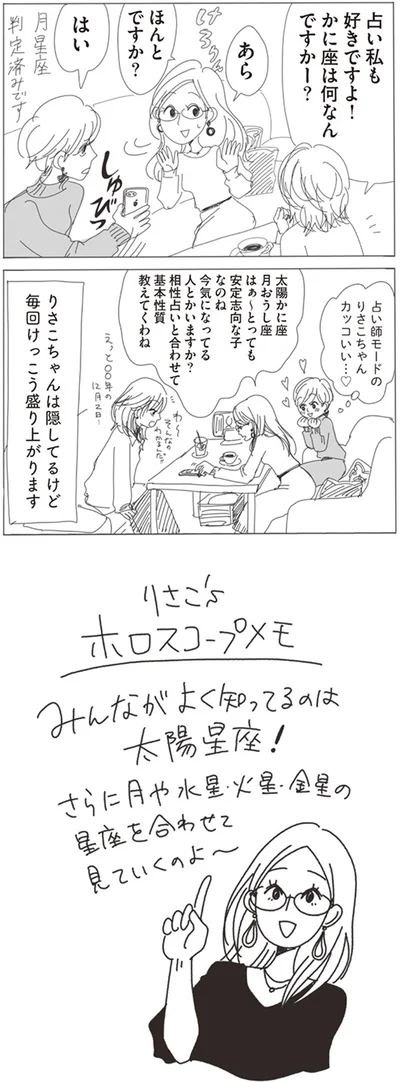 占い私も
好きですよ！
かに座は何なん
ですかー？
あら
けろりん
ほんと
ですか？
はい
しゅびっ
月星座
判定済みです
占い師モードの
りさこちゃん
カッコいい…♡
太陽かに座
月おうし座
はぁ〜とっても
安定志向な子
なのね
今気になってる
人とかいますか？
相性占いと合わせて
基本性質
教えてくわね
わ〜
そんなの
わかるんだ!!
えっと〇〇年の
12月2日…
りさこちゃんは隠してるけど
毎回けっこう盛り上がります
りさこ's
ホロスコープメモ
みんながよく知ってるのは
太陽星座！
さらに月や水星・火星・金星の
星座を合わせて
見ていくのよ〜